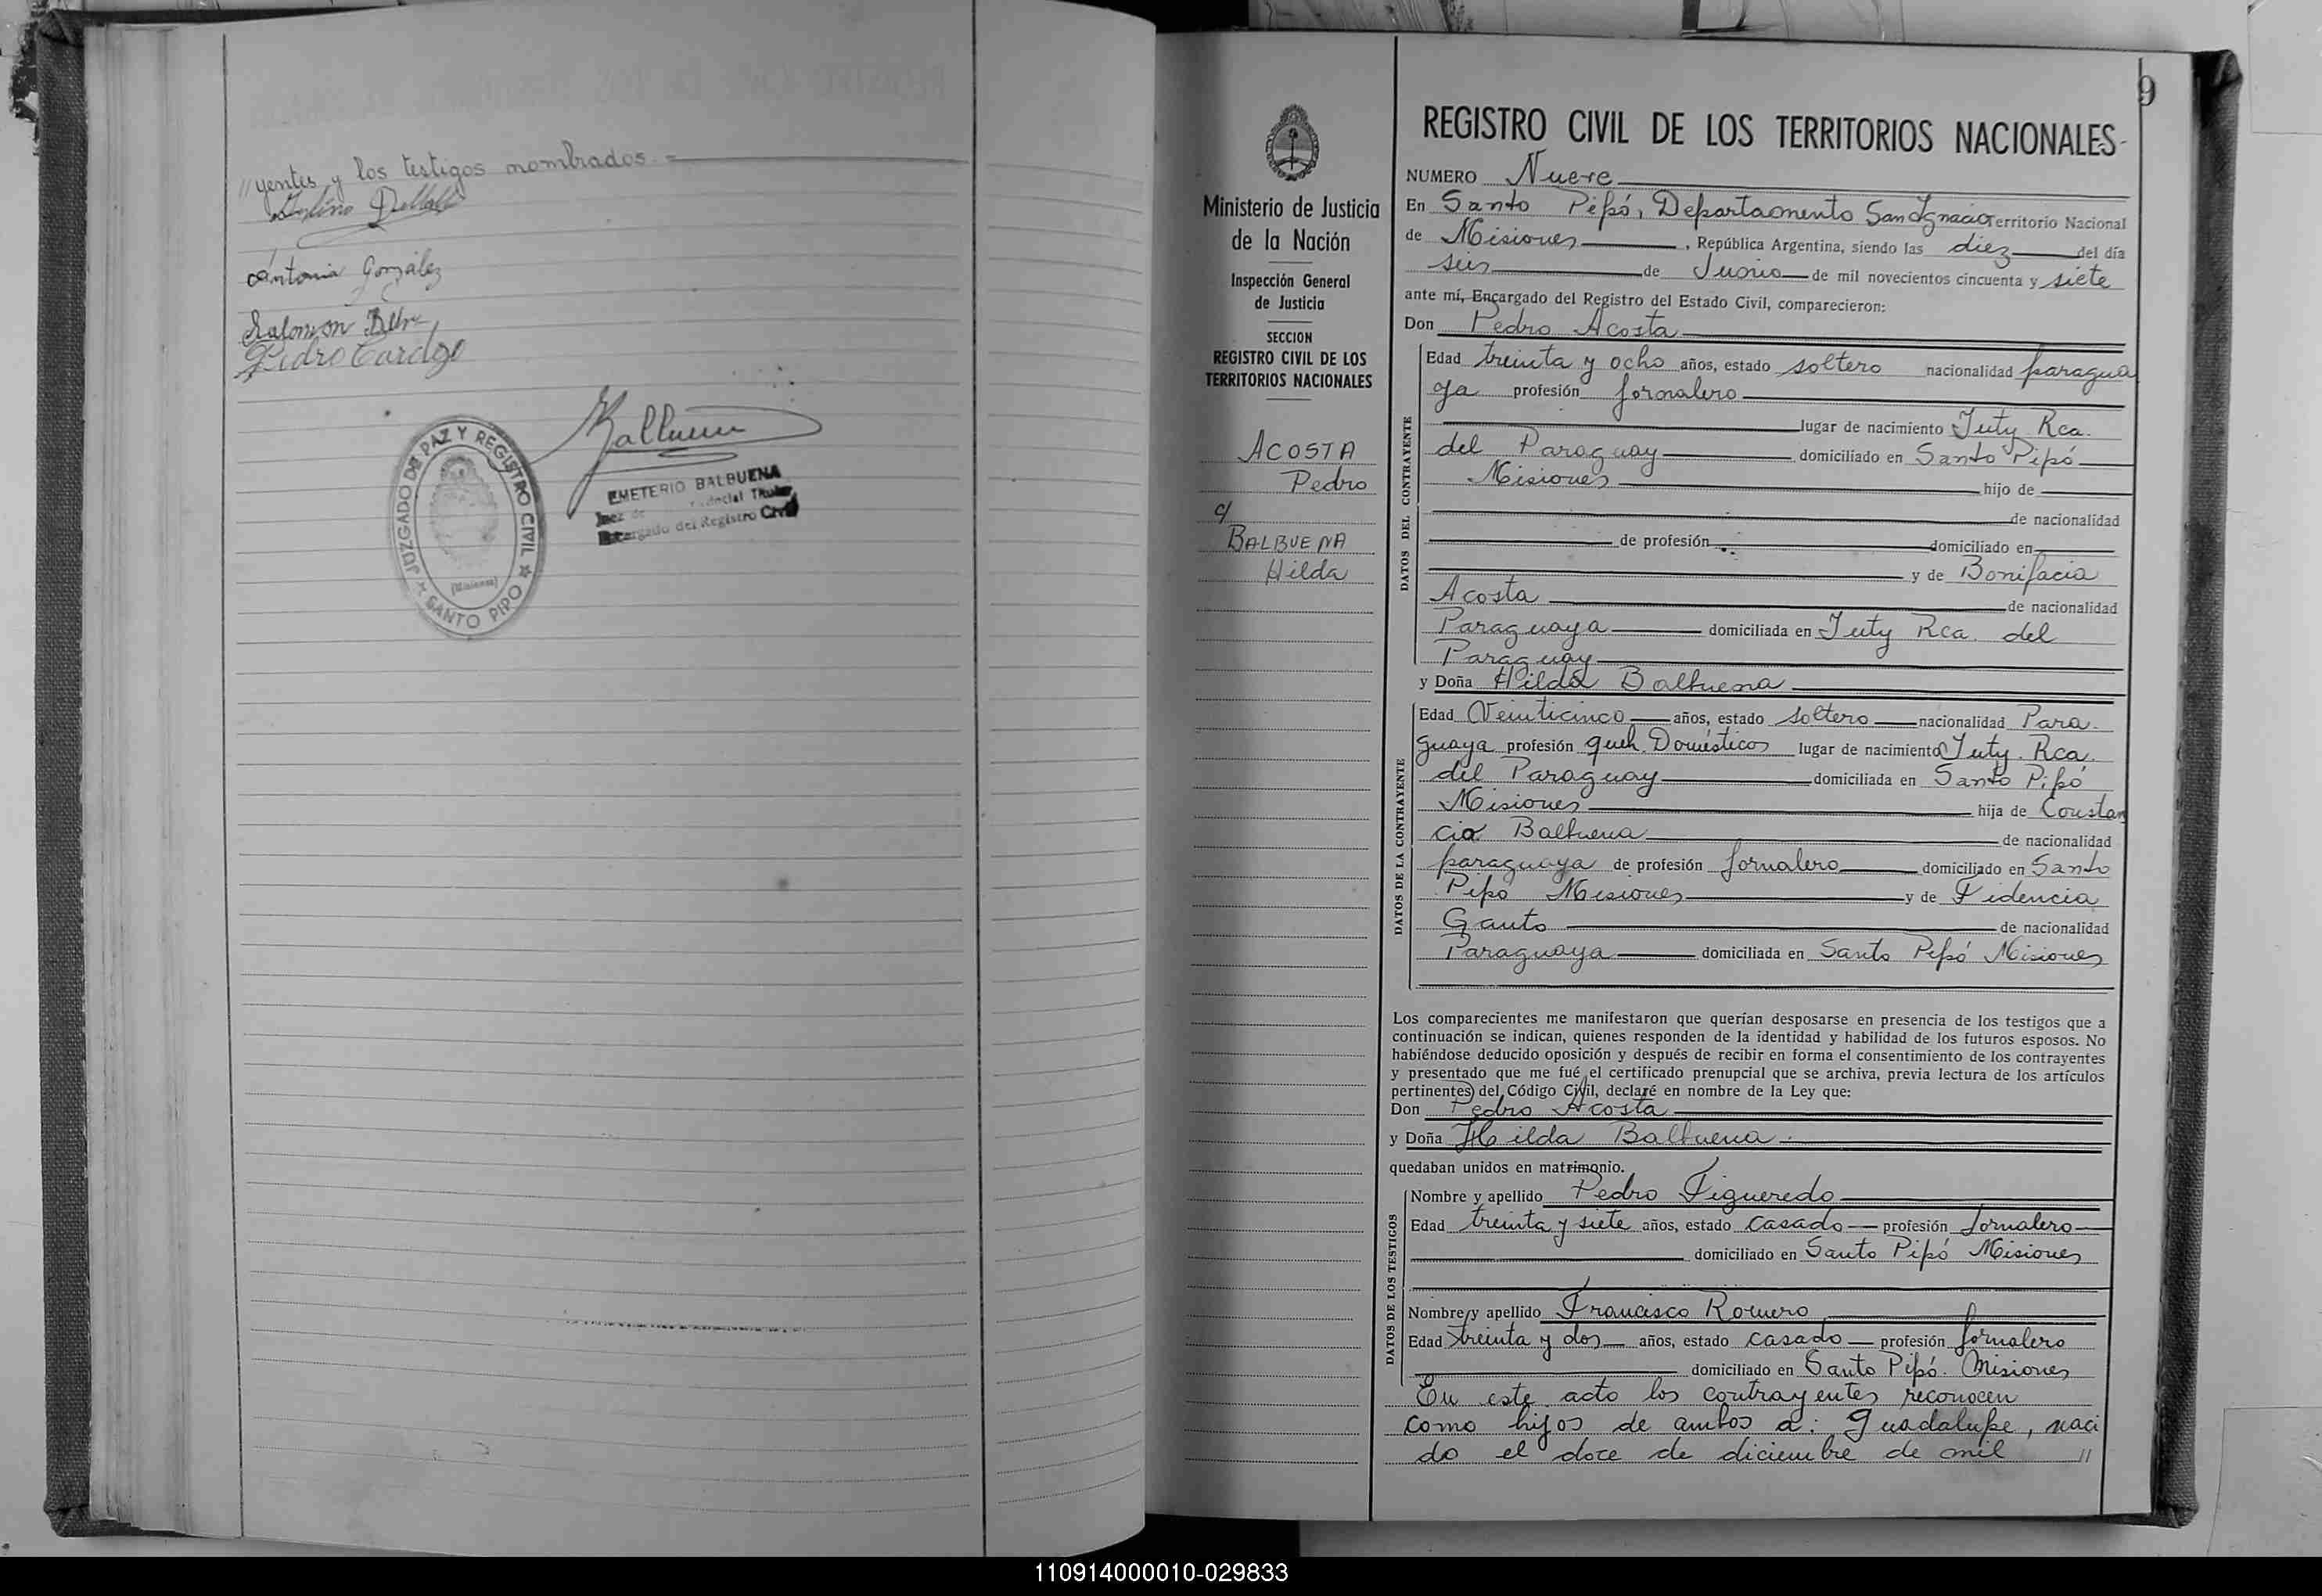 //yentes y los testigos nombrados.=
Antonia González
Salomon
Pedro Cardozo
JUZGADO DE PAZ Y REGISTRO CIVIL
SANTO PIPO
(Misiones)
EMETERIO BALBUENA
Juez de
Encargado del Registro Civil
9
REGISTRO CIVIL DE LOS TERRITORIOS NACIONALES
Ministerio de Justicia
de la Nación
Inspección General
de Justicia
SECCION
REGISTRO CIVIL DE LOS
TERRITORIOS NACIONALES
ACOSTA
Pedro
c/
BALBUENA
Hilda
NUMERO Nueve
En Santo Pipó, Departamento San Ignacio Territorio Nacional
de Misiones, República Argentina, siendo las diez del día
seis de Junio de mil novecientos cincuenta y siete
ante mí, Encargado del Registro del Estado Civil, comparecieron:
Don Pedro Acosta
DATOS DEL CONTRAYENTE
Edad treinta y ocho años, estado soltero nacionalidad paragua
ya profesión jornalero
lugar de nacimiento Yuty Rca.
del Paraguay domiciliado en Santo Pipó
Misiones hijo de
de nacionalidad
de profesión domiciliado en
y de Bonifacia
Acosta de nacionalidad
Paraguaya domiciliada en Yuty Rca. del
Paraguay
y Doña Hilda Balbuena
DATOS DE LA CONTRAYENTE
Edad Veinticinco años, estado soltero nacionalidad Para-
guaya profesión queh. Domésticos lugar de nacimiento Yuty. Rca.
del Paraguay domiciliada en Santo Pipó
Misiones hija de Constan
cia Balbuena de nacionalidad
paraguaya de profesión jornalero domiciliado en Santo
Pipó Misiones y de Fidencia
Gauto de nacionalidad
Paraguaya domiciliada en Santo Pipó Misiones
Los comparecientes me manifestaron que querían desposarse en presencia de los testigos que a
continuación se indican, quienes responden de la identidad y habilidad de los futuros esposos. No
habiéndose deducido oposición y después de recibir en forma el consentimiento de los contrayentes
y presentado que me fué el certificado prenupcial que se archiva, previa lectura de los artículos
pertinentes del Código Civil, declaré en nombre de la Ley que:
Don Pedro Acosta
y Doña Hilda Balbuena.
quedaban unidos en matrimonio.
DATOS DE LOS TESTIGOS
Nombre y apellido Pedro Figueredo
Edad treinta y siete años, estado casado profesión Jornalero
domiciliado en Santo Pipó Misiones
Nombre y apellido Francisco Romero
Edad treinta y dos años, estado casado profesión jornalero
domiciliado en Santo Pipó. Misiones
En este acto los contrayentes reconocen
como hijos de ambos a: Guadalupe, naci
do el doce de diciembre de mil //
110914000010-029833